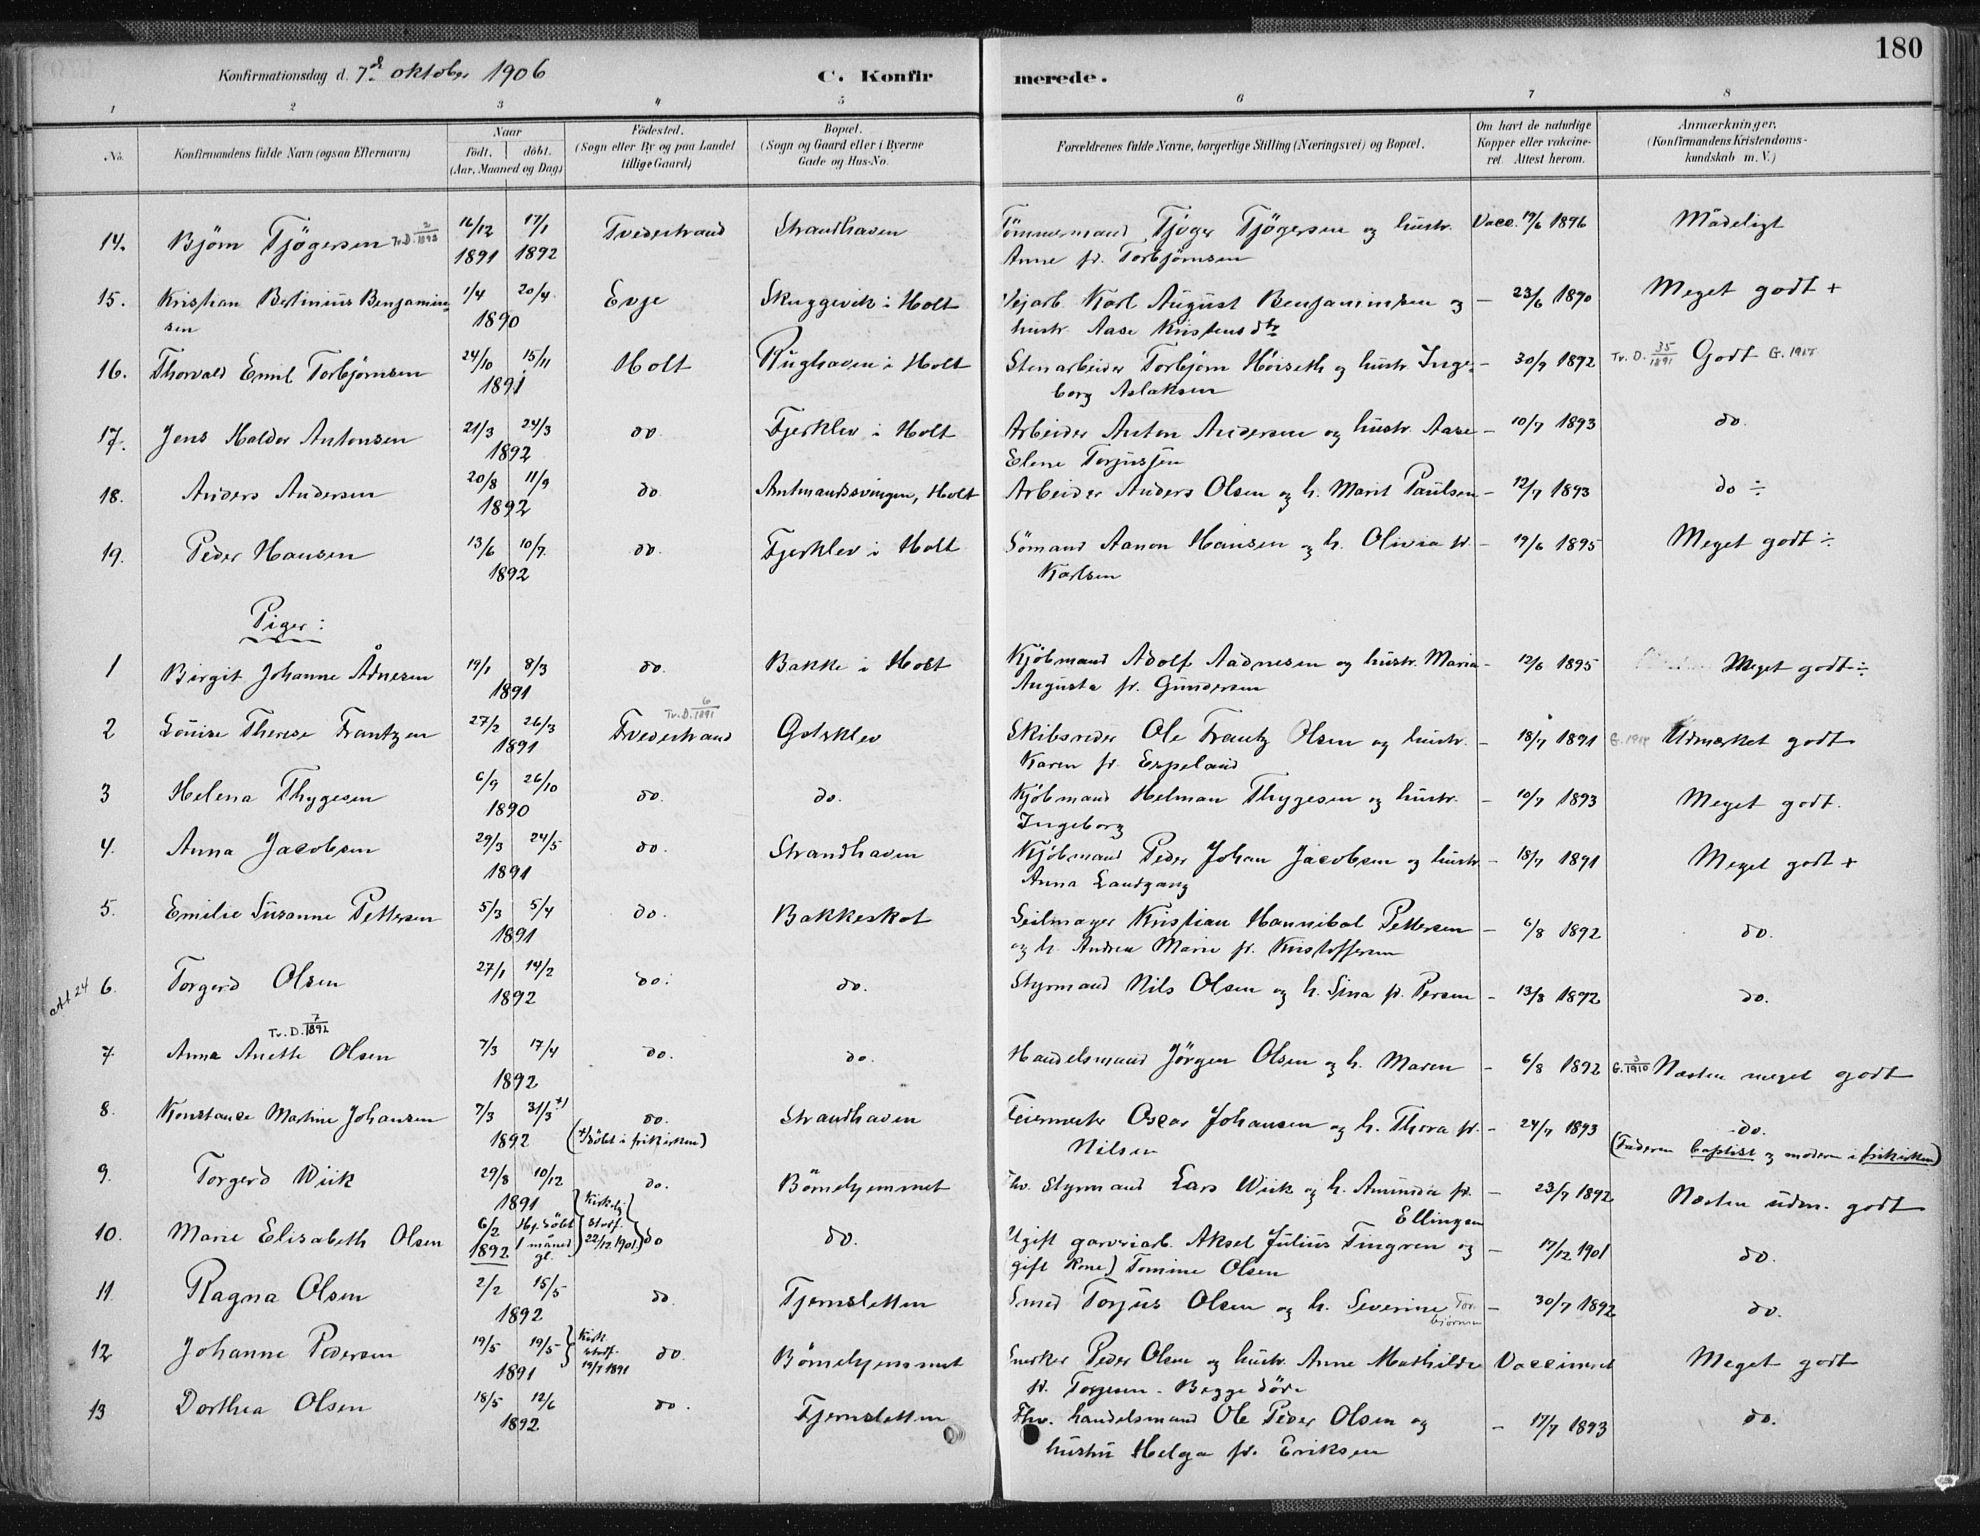 180
Konfirmationsdag d. 7de oktober 1906 C. Konfirmerede.
1 2 3 4 5 6 7 8
No. Konfirmandens fulde Navn (ogsaa Efternavn) Naar Födt. döbt. (Aar, Maaned og Dag) Födested. (Sogn eller By og paa Landet tillige Gaard) Bopæl. (Sogn og Gaard eller i Byerne Gade og Hus-No. Forældrenes fulde Navne, borgerlige Stilling (Næringsvei) og Bopæl. Om havt de naturlige Kopper eller vakcineret. Attest herom. Anmærkninger. (Konfirmandens Kristendomskundskab m. V.)
14. Bjørn Tjøgersen Tv.D. 2/1892 16/12 1891 17/1 1892 Tvedestrand Strandhaven Tömmermand Tjöger Tjögersen og hustr. Vacc. 17/6 1896 Mådeligt
Anne f. Torbjørnsen
15. Kristian Bertinius Benjamin- 1/4 20/4 1890 Evje Skuggevik i Holt Vejarb. Karl August Benjaminsen og – 23/6 1890 Meget godt +
sen hustr. Aase Kristensdtr
16. Thorvald Emil Torbjørnsen 24/10 15/11 1891 Holt Rughaven i Holt Stenarbeider Torbjørn Höiseth og hustr. Inge- – 30/7 1892 Tv. D. 35/1891 Godt G. 1915
borg Aslaksen
17. Jens Haldor Antonsen 21/3 24/3 1892 do. Fjerklev i Holt Arbeider Anton Andersen og hustr. Aase – 10/7 1893 do.
Elene Torjussen
18. Anders Andersen 20/8 11/9 1892 do Amtmandssvingen, Holt Arbeider Anders Olsen og h. Marit Paulsen – 12/7 1893 do ÷
19. Peder Hansen 13/6 10/7 1892 do. Fjerklev i Holt Sömand Aanon Hansen og h. Olivia f. – 19/6 1895 Meget godt ÷
Karlsen
Piger:
1 Birgit Johanne Ådnesen 19/1 8/3 1891 do. Bakke i Holt Kjöbmand Adolf Aadnesen og hustr. Maria – 12/6 1895 Meget godt ÷
Augusta f. Gundersen
2 Louise Therese Frantzen 27/2 26/3 1891 Tv.D. 6/1891 Tvedestrand Galsklev Skibsreder Ole Frantz Olsen og hustr. – 18/7 1891 Udmærket godt
Karen f. Espeland
3 Helena Thygesen 6/9 26/10 1890 do. do. Kjöbmand Helman Thygesen og hustr. – 10/7 1893 Meget godt.
Ingeborg
4. Anna Jacobsen 29/3 24/5 1891 do. Strandhaven Kjöbmand Peder Johan Jacobsen og hustr. – 18/7 1891 Meget godt +
Anna Landgang
5. Emilie Susanne Pettersen 5/3 5/4 1891 do. Bakkeskot Seilmager Kristian Hannibal Pettersen – 6/8 1892 do.
og h. Andrea Marie f. Kristoffersen
6. Torgerd Olsen 27/1 14/2 1892 do. do. Styrmand Nils Olsen og h. Sina f. Persen – 13/8 1892 do.
Tv. D. 7/1892
7. Anna Anette Olsen 7/3 17/4 1892 do. do. Handelsmand Jörgen Olsen og h. Maren – 6/8 1892 G. 3/1910 Næsten meget godt
8. Konstance Martine Johansen 7/3 31/3 +) 1892 do. (+) döbt i frikirken) Strandhaven Feiermester Oscar Johansen og h. Thora f. – 24/7 1893 do.
Nilsen (Faderen baptist og moderen i frikirken)
9. Torgerd Wiik 29/8 10/12 1891 do. Börnehjemmet Fhv. Styrmand Lars Wiik og h. Amunda f. – 23/7 1892 Næsten udm. godt
Ellingsen
10. Marie Elisabeth Olsen 6/2 1892 Hj. döbt 1 måned gl. (Kirkelig stadf. 22/12 1901) do do. Ugift garveriarb. Aksel Julius Tingren og – 17/12 1901 do.
gift kone) Tomine Olsen
11. Ragna Olsen 2/2 15/5 1892 do. Tjernsletten Smed Torjus Olsen og h. Severine Torbjörnsen – 30/7 1892 do.
12 Johanne Pedersen 19/5 19/5 1891 Kirk. stadf. 19/7 1891 do. Börnehjemmet Snekker Peder Olsen og hustr. Anne Mathilde Vaccineret Meget godt
f. Torjesen. Begge döde
13 Dorthea Olsen 18/5 12/6 1892 do. Tjernsletten Fhv. handelsmand Ole Peder Olsen og – 17/7 1893 do.
hustru Helga f. Eriksen